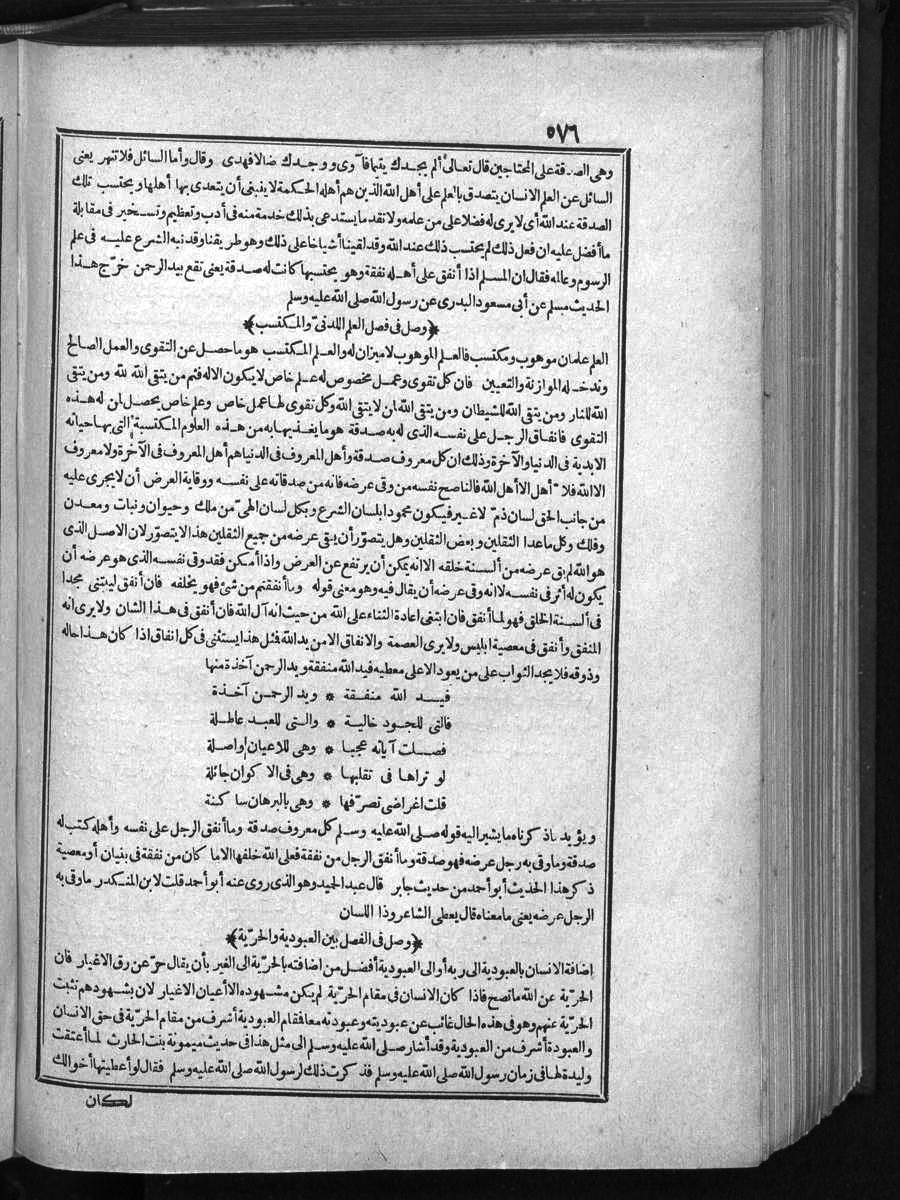 ٥٧٦
وهى الصدقة على المحتاجين قال تعالى ألم يجدك يتيما فآوى ووجدك ضالا فهدى وقال وأما السائل فلا تنهر يعنى
السائل عن العلم الانسان يتصدق بالعلم على أهل الله الذين هم أهله الحكمة لا ينبغى أن يتعدى بها أهلها ويحتسب تلك
الصدقة عند الله أى لا يرى له فضلا على من علمه ولا تقدما يستدعى بذلك خدمة منه فى أدب وتعظيم وتسخير فى مقابلة
ما أفضل عليه ان فعل ذلك لم يحتسب ذلك عند الله وقد لقينا أشياخا على ذلك وهو طريقنا وقد نبه الشرع عليه فى علم
الرسوم وعالمه فقال ان المسلم اذا أنفق على أهله نفقة وهو يحتسبها كانت له صدقة يعنى تقع بيد الرحمن خرّج هذا
الحديث مسلم عن أبى مسعود البدرى عن رسول الله صلى الله عليه وسلم
﴿وصل فى فصل العلم اللدنىّ والمكتسب﴾
العلم علمان موهوب ومكتسب فالعلم الموهوب لا ميزان له والعلم المكتسب هو ما حصل عن التقوى والعمل الصالح
وتدخله الموازنة والتعيين فان كل تقوى وعمل مخصوص له علم خاص لا يكون الا له فثم من يتقى الله لله ومن يتقى
الله للنار ومن يتقى الله للشيطان ومن يتقى الله ان لا يتقى الله وكل تقوى لها عمل خاص وعلم خاص يحصل لمن له هذه
التقوى فانفاق الرجل على نفسه الذى له به صدقة هو ما يغذيها به من هذه العلوم المكتسبة التى بها حياته
الابدية فى الدنيا والآخرة وذلك ان كل معروف صدقة وأهل المعروف فى الدنيا هم أهل المعروف فى الآخرة ولا معروف
الا الله فلا أهل الا أهل الله فالناصح نفسه من وقى عرضه فانه من صدقاته على نفسه ووقاية العرض أن لا يجرى عليه
من جانب الحق لسان ذمّ لا غير فيكون محمودا بلسان الشرع وبكل لسان الهىّ من ملك وحيوان ونبات ومعدن
وفلك وكل ما عدا الثقلين وبعض الثقلين وهل يتصوّر أن يقى عرضه من جميع الثقلين هذا لا يتصوّر لان الاصل الذى
هو الله لم يق عرضه من ألسنة خلقه الا انه يمكن أن يرتفع عن العرض واذا أمكن فقد وقى نفسه الذى هو عرضه أن
يكون له أثر فى نفسه لا انه وقى عرضه أن يقال فيه وهو معنى قوله وما أنفقتم من شئ فهو يخلفه فان أنفق ليبتنى مجدا
فى ألسنة الخلق فهو لما أنفق فان ابتغى اعادة الثناء على الله من حيث انه آل الله فان أنفق فى هذا الشان ولا يرى انه
المنفق وأنفق فى معصية ابليس ولا يرى العصمة والانفاق الا من يد الله فمثل هذا يستثنى فى كل انفاق اذا كان هذا حاله
وذوقه فلا يجد الثواب على من يعود الا على معطيه فيد الله منفقة ويد الرحمن آخذة منها
فيد الله منفقة * ويد الرحمن آخذة
فالتى للجود خالية * والتى للعبد عاطلة
فصلت آياته عجبا * وهى للاعيان واصلة
لو تراها فى تقلبها * وهى فى الاكوان جائلة
قلت اغراضى تصرّفها * وهى بالبرهان ساكنة
ويؤيد ما ذكرناه ما يشير اليه قوله صلى الله عليه وسلم كل معروف صدقة وما أنفق الرجل على نفسه وأهله كتب له
صدقة وما وقى به رجل عرضه فهو صدقة وما أنفق الرجل من نفقة فعلى الله خلفها الا ما كان من نفقة فى بنيان أو معصية
ذكر هذا الحديث أبو أحمد من حديث جابر قال عبد الحميد وهو الذى روى عنه أبو أحمد قلت لابن المنكدر ما وقى به
الرجل عرضه يعنى ما معناه قال يعطى الشاعر وذا اللسان
﴿وصل فى الفصل بين العبودية والحرّية﴾
اضافة الانسان بالعبودية الى ربه أو الى العبودية أفضل من اضافته بالحرّية الى الغير بأن يقال حرّ عن رق الاغيار فان
الحرّية عن الله ما تصح فاذا كان الانسان فى مقام الحرّية لم يكن مشهوده الا أعيان الاغيار لان بشهودهم تثبت
الحرّية عنهم وهو فى هذه الحال غائب عن عبوديته وعبودته معا فمقام العبودية أشرف من مقام الحرّية فى حق الانسان
والعبودة أشرف من العبودية وقد أشار صلى الله عليه وسلم الى مثل هذا فى حديث ميمونة بنت الحارث لما أعتقت
وليدة لها فى زمان رسول الله صلى الله عليه وسلم فذكرت ذلك لرسول الله صلى الله عليه وسلم فقال لو أعطيتها أخوالك
لكان